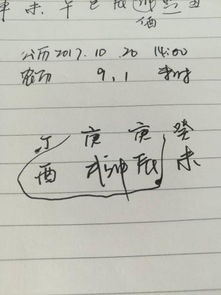 未. 午 巳 辰
公历2017.10.20 14:00
农历 9.1 未时
丁 庚 庚 癸
酉 戌 辰 未